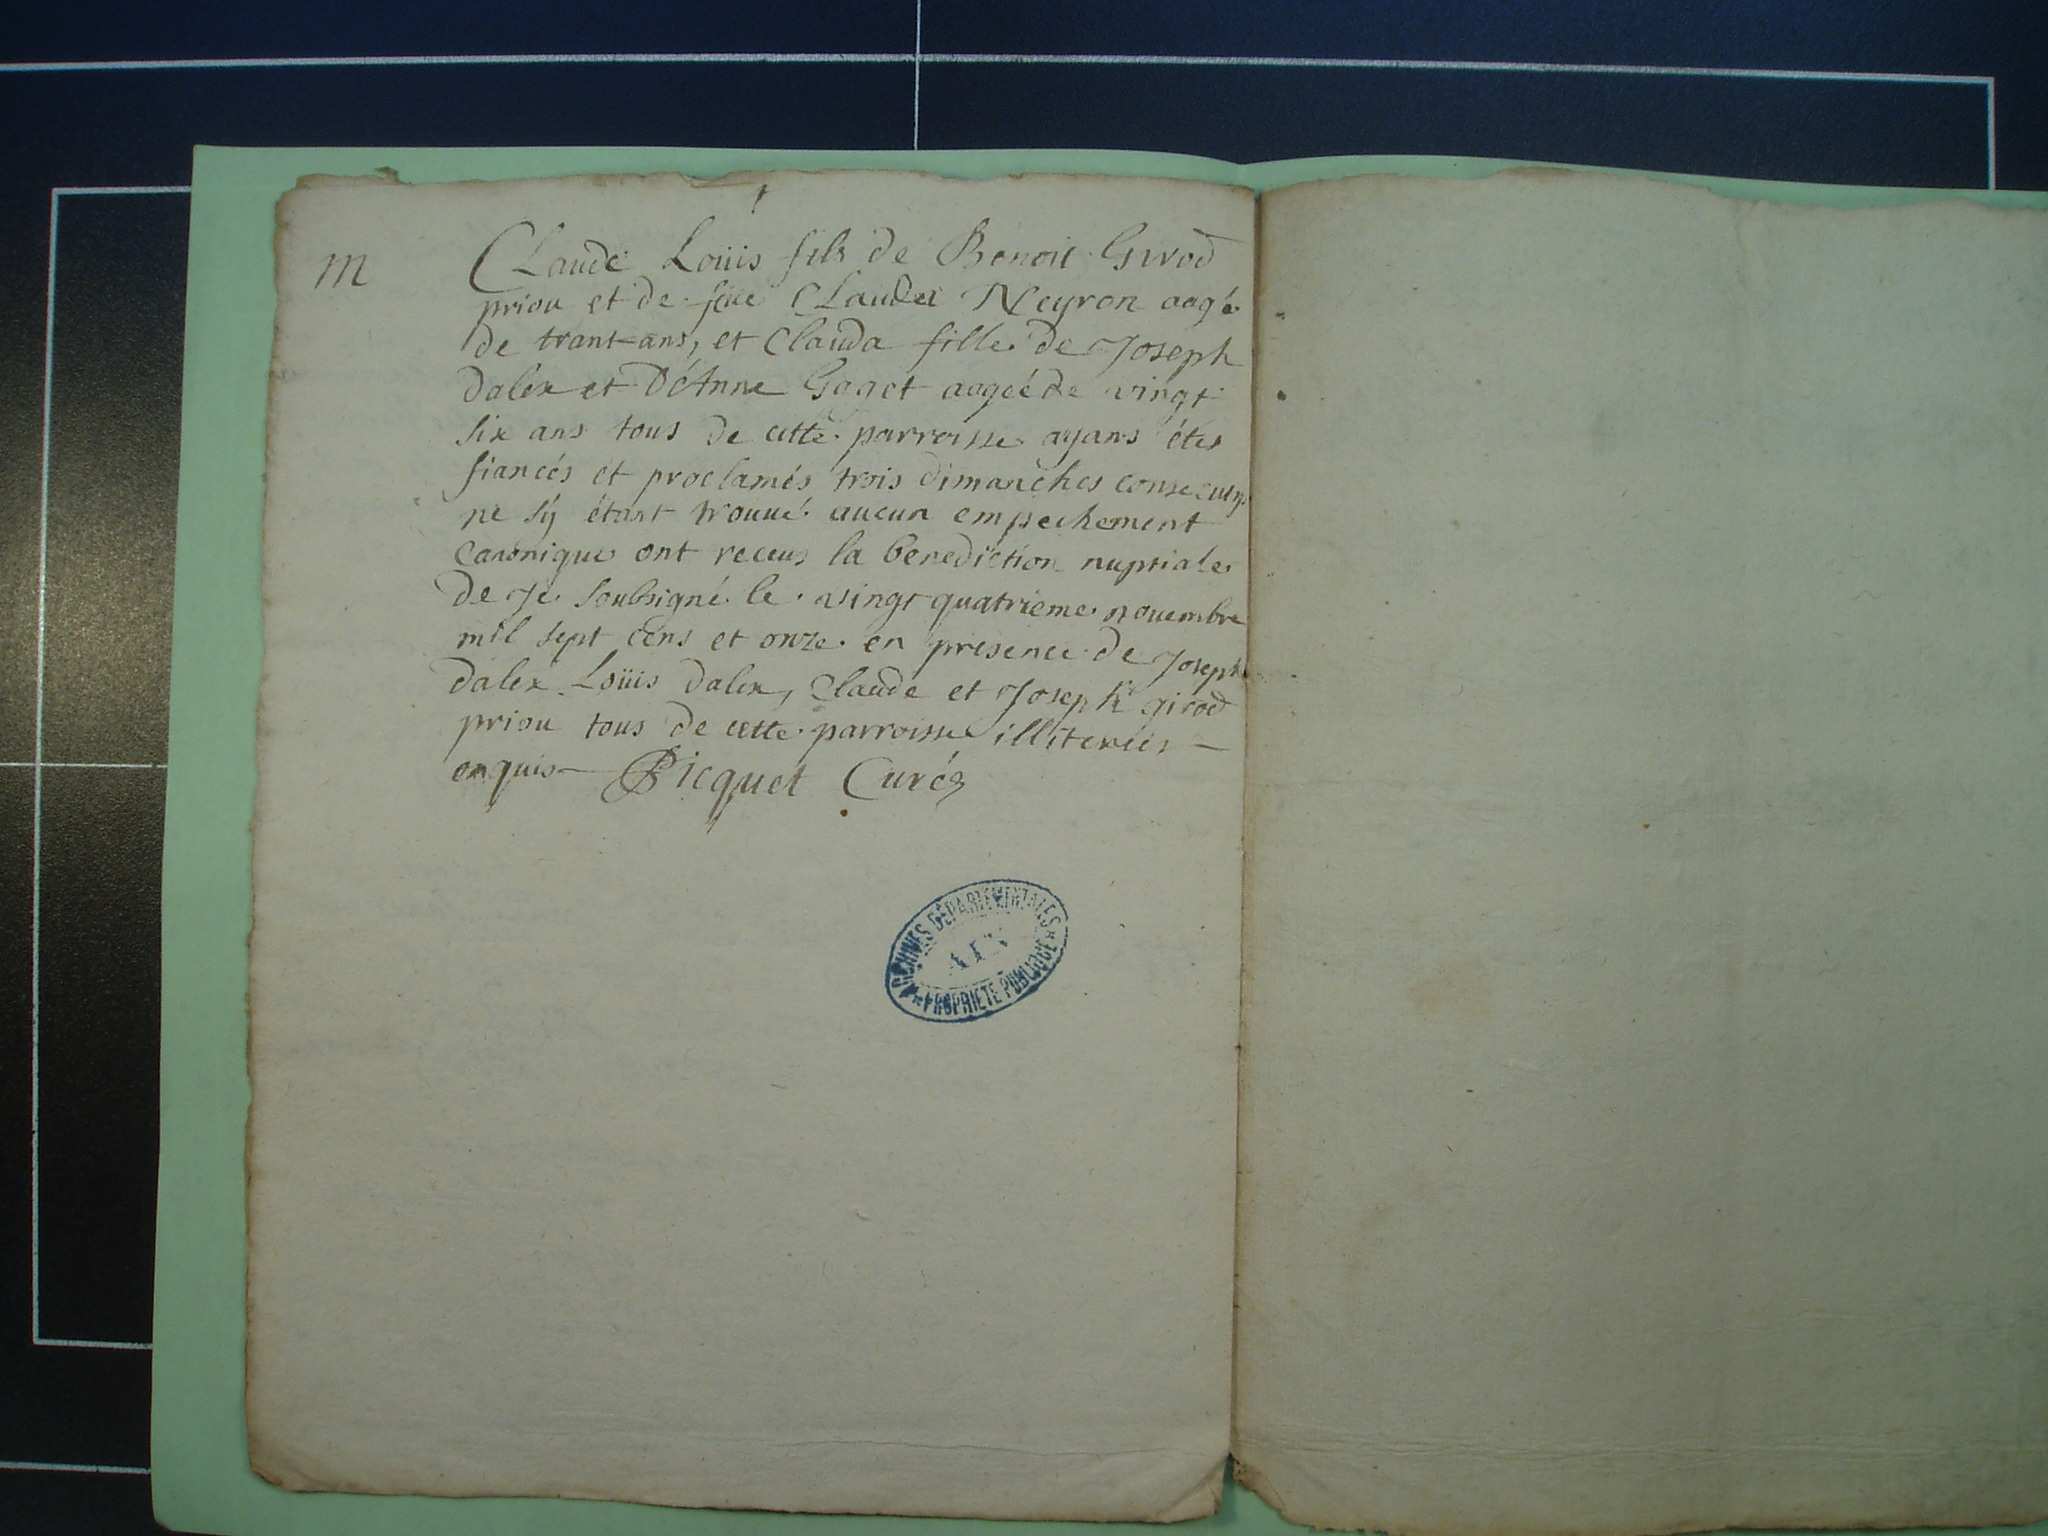 m
Claude Loüis fils de Benoit Girod
priou et de feue Claudea Neyron aagé
de trant ans, et Clauda fille de Joseph
dalex et D'éAnne Gonet aageé de vingt
six ans tous de cette parroisse ayans étes
fiancés et proclamés trois dimanches consecutifs
ne s'ÿ étant trouué aucun empechement
Canonique ont receus la benediction nuptiale
de Je soubsigné le vingt quatrieme nouembre
mil sept cens et onze en presence de Joseph
dalex Loüis dalex, Claude et Joseph girod
priou tous de cette parroisse illiterées
enquis Picquet Curé
ARCHIVES DÉPARTEMENTALES
AIN
PROPRIETE PUBLIQUE